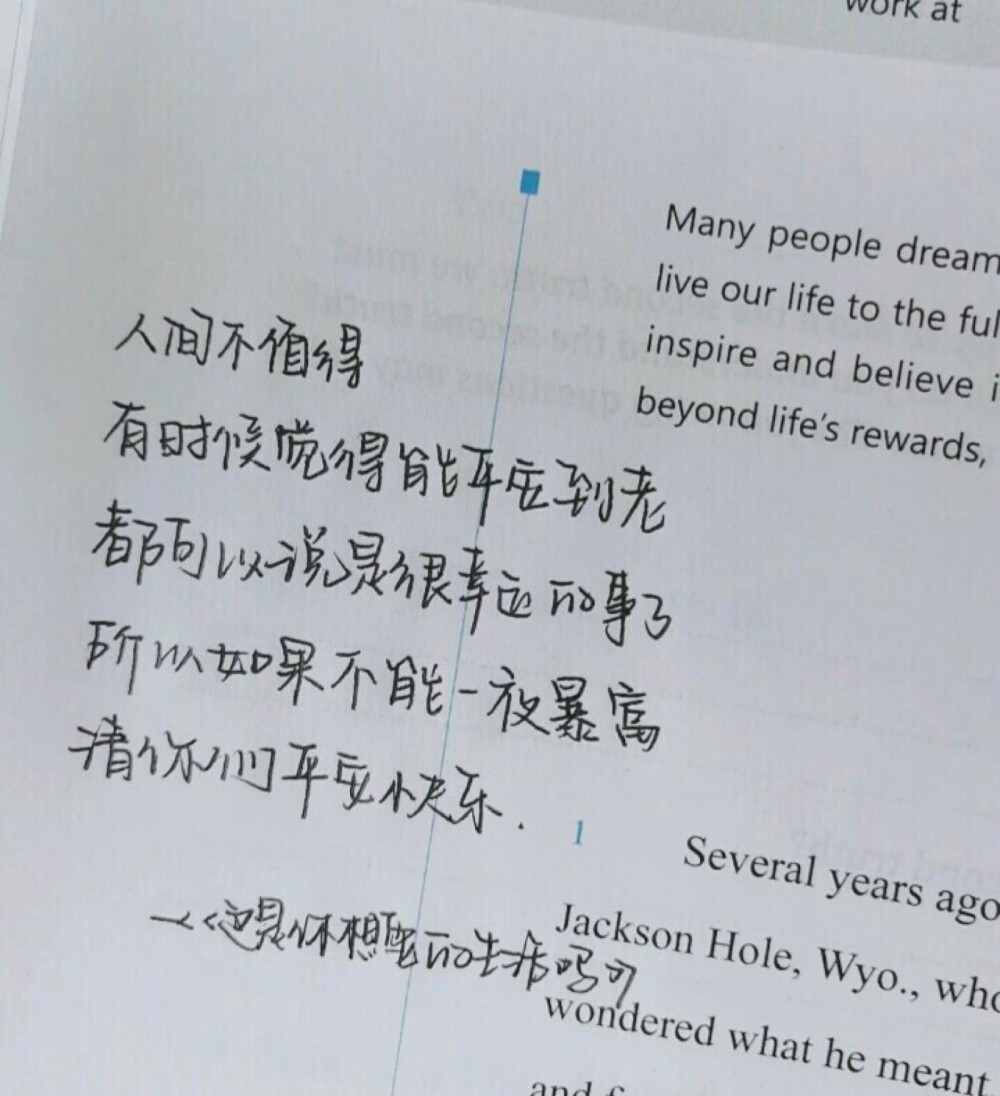 work at
Many people dream
live our life to the ful
inspire and believe i
beyond life's rewards,
人间不值得
有时候觉得能平安到老
都可以说是很幸运的事了
所以如果不能一夜暴富
请你们平安快乐.
—《这是你想要的生活吗》
1
Several years ago
Jackson Hole, Wyo., who
wondered what he meant
and f